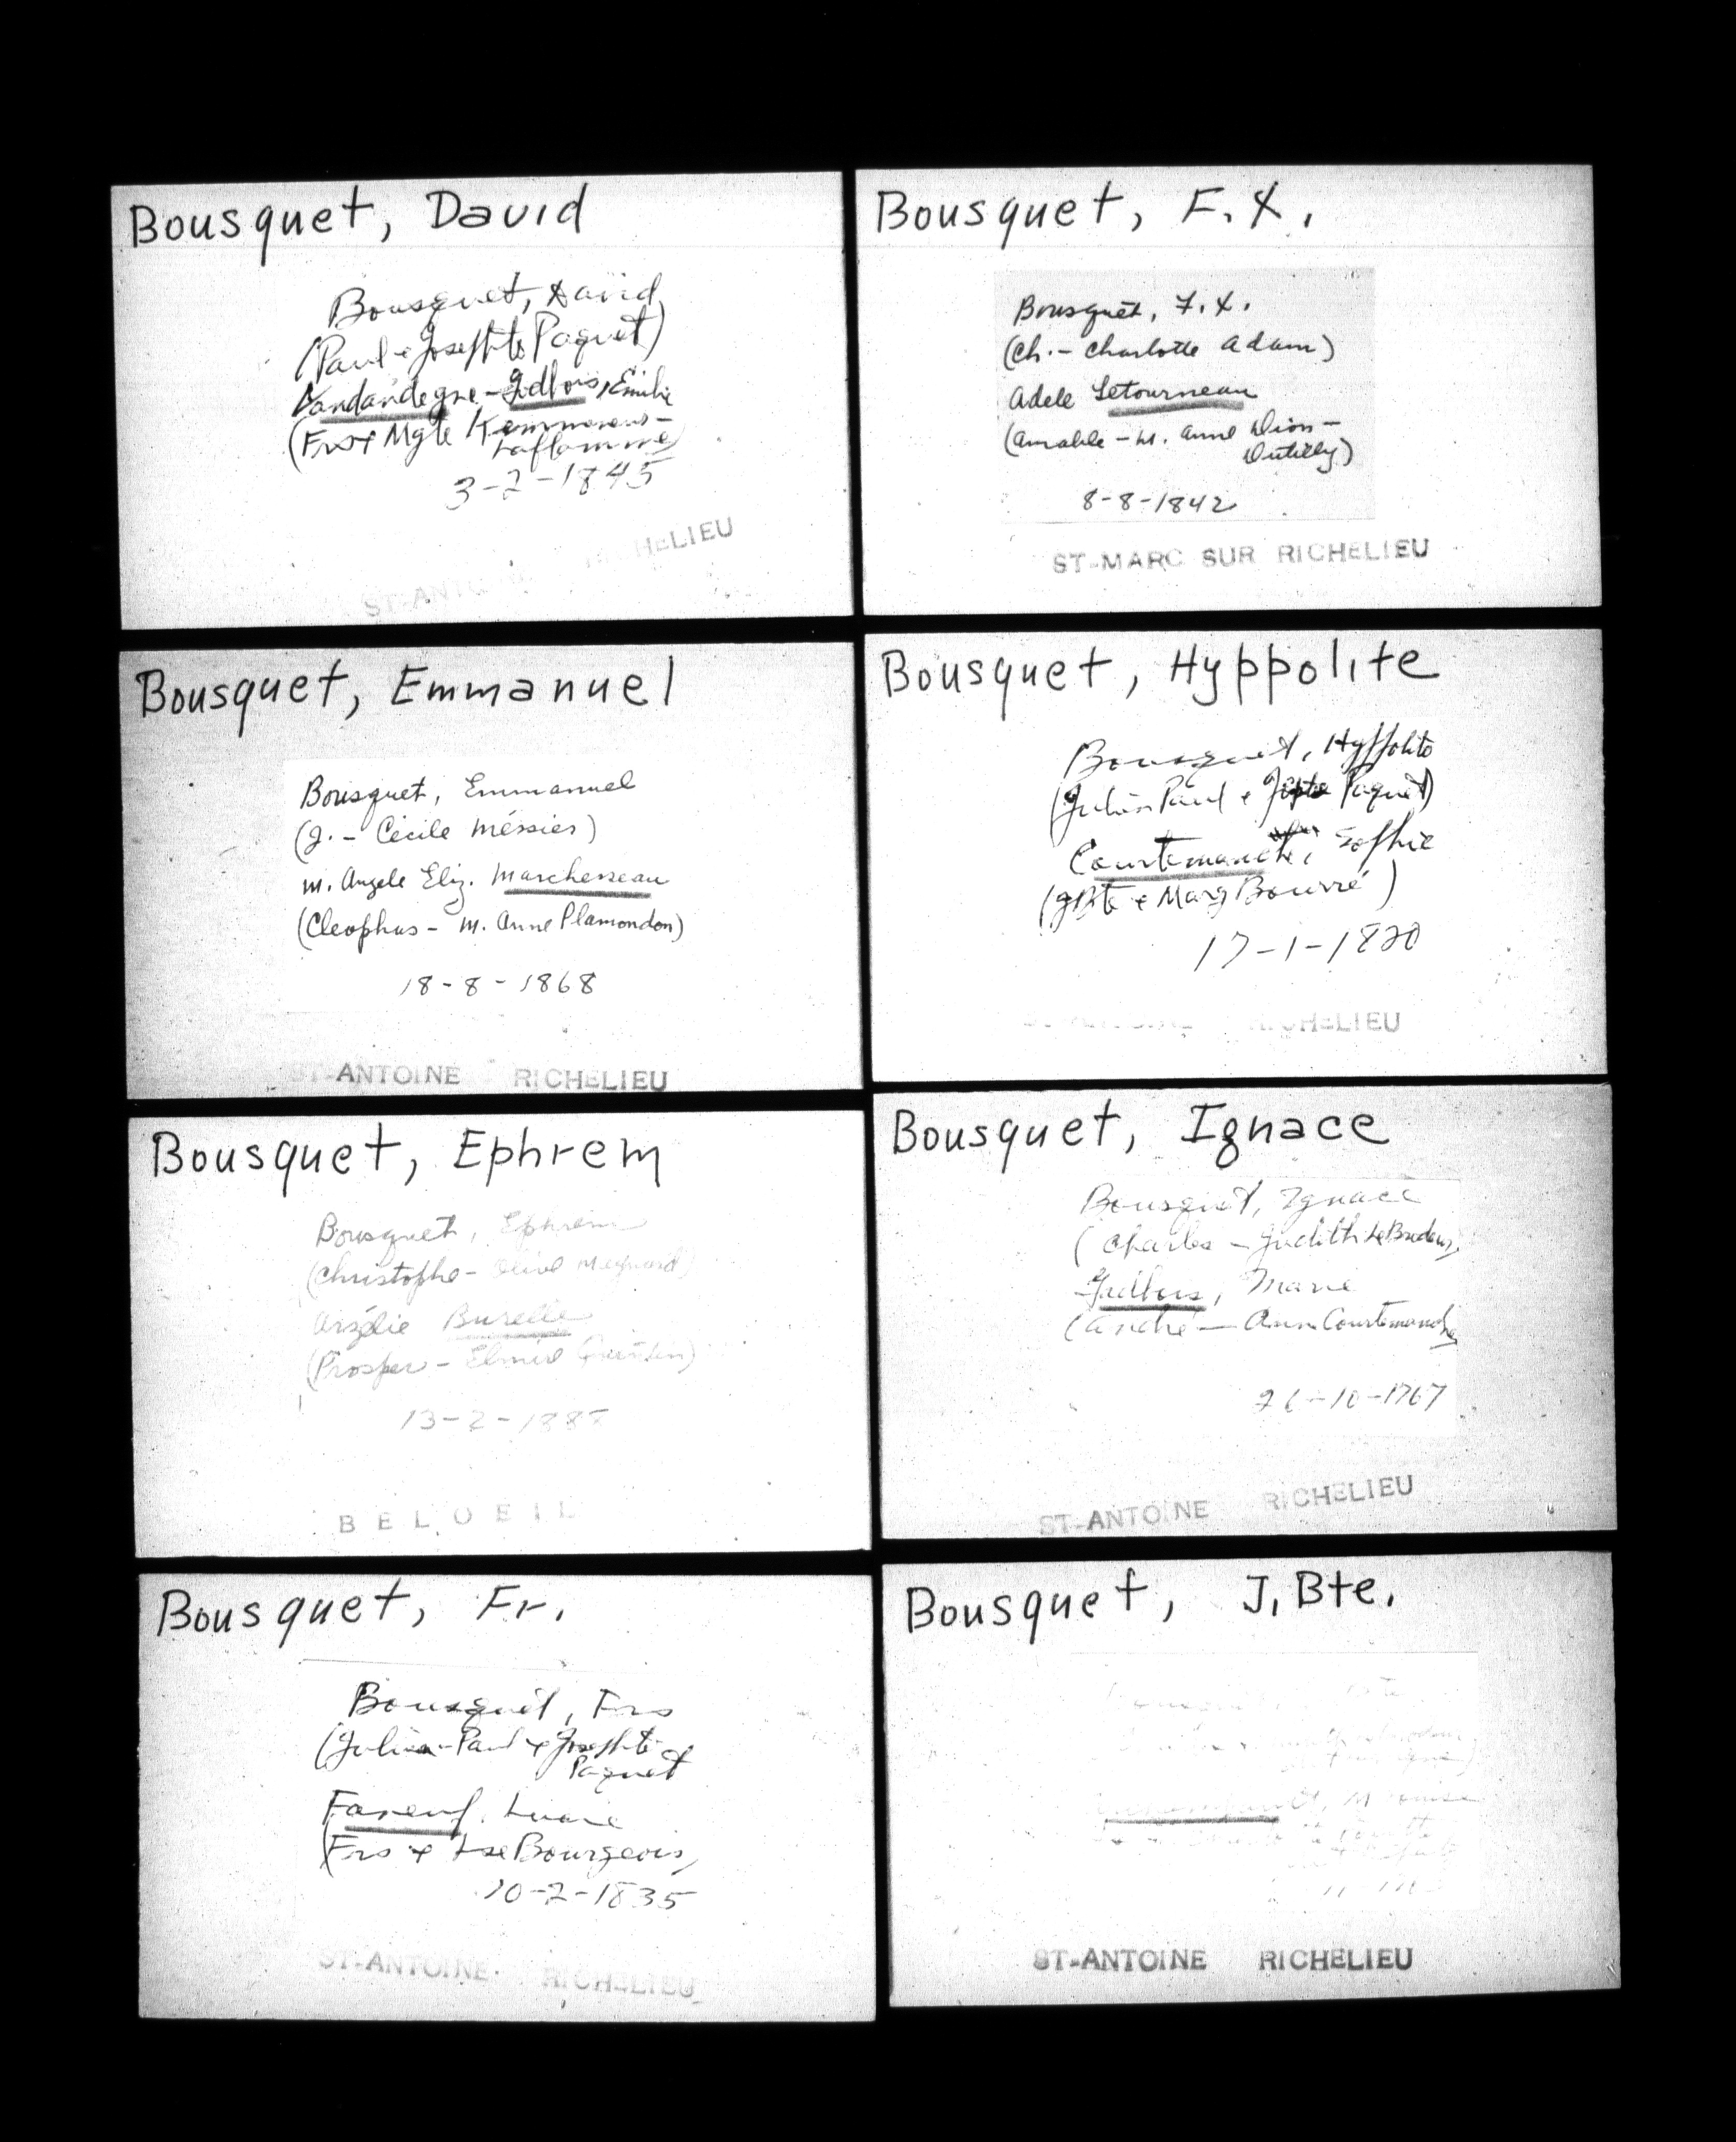 Bousquet, David
Bousquet, David
(Paul & Josephte Paquet)
Vandandegne - Gadbois, Emilie
(Frs & Mgte Kemmeneur-
Laflamme)
3-2-1845
ST-ANTOINE RICHELIEU
Bousquet, F.X.
Bousquet, F.X.
(Ch. - Charlotte Adam)
Adele Letourneau
(Amable - M. Anne Dion-
Dutilly)
8-8-1842
ST-MARC SUR RICHELIEU
Bousquet, Emmanuel
Bousquet, Emmanuel
(J. - Cécile Méssier)
M. Angele Eliz. Marchesseau
(Cleophas - M. Anne Plamondon)
18-8-1868
ST-ANTOINE RICHELIEU
Bousquet, Hyppolite
Bousquet, Hyppolite
(Julien Paul & Jspte Paquet)
Courtemanche, Sophie
(JBte & Marg Bourré)
17-1-1820
RICHELIEU
Bousquet, Ephrem
Bousquet, Ephrem
(Christophe - Olive Meynard)
Arzélie Burelle
(Prosper - Elmire)
13-2-188
BELOEIL
Bousquet, Ignace
Bousquet, Ignace
(Charles - Judith LeBrodeur)
Gadbois, Marie
(André - Ann Courtemanche)
26-10-1767
ST-ANTOINE RICHELIEU
Bousquet, Fr.
Bousquet, Frs
(Julien-Paul & Josephte
Paquet
Fareuf, Luce
(Frs & Lse Bourgeois)
10-2-1835
ST-ANTOINE RICHELIEU
Bousquet, J. Bte.
ST-ANTOINE RICHELIEU